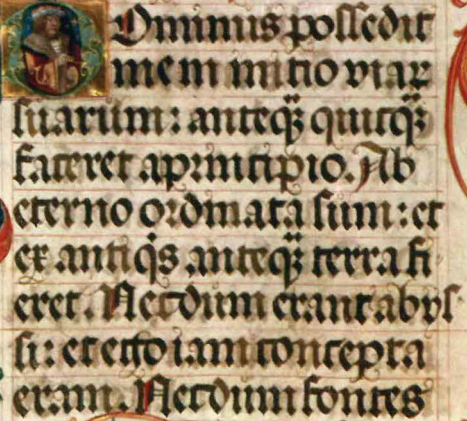 Dominus possedit
me in initio viaꝝ
suarum: anteqꝫ quicqꝫ
faceret a principio. Ab
eterno ordinata sum: et
ex antiq̇s anteqꝫ terra fi
eret. Necdum erant abys
si: et ego iam concepta
eram. Necdum fontes